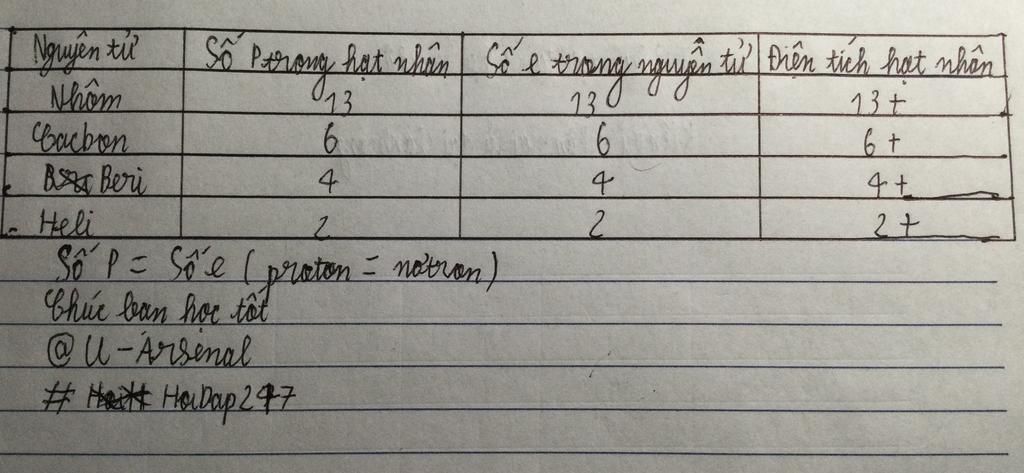 Nguyên tử Số P trong hạt nhân Số e trong nguyên tử Điện tích hạt nhân
Nhôm 13 13 13+
Cacbon 6 6 6+
Beri 4 4 4+
Heli 2 2 2+
Số P = Số e (proton = nơtron)
Chúc bạn học tốt
@ U-Arsenal
# HoiDap247